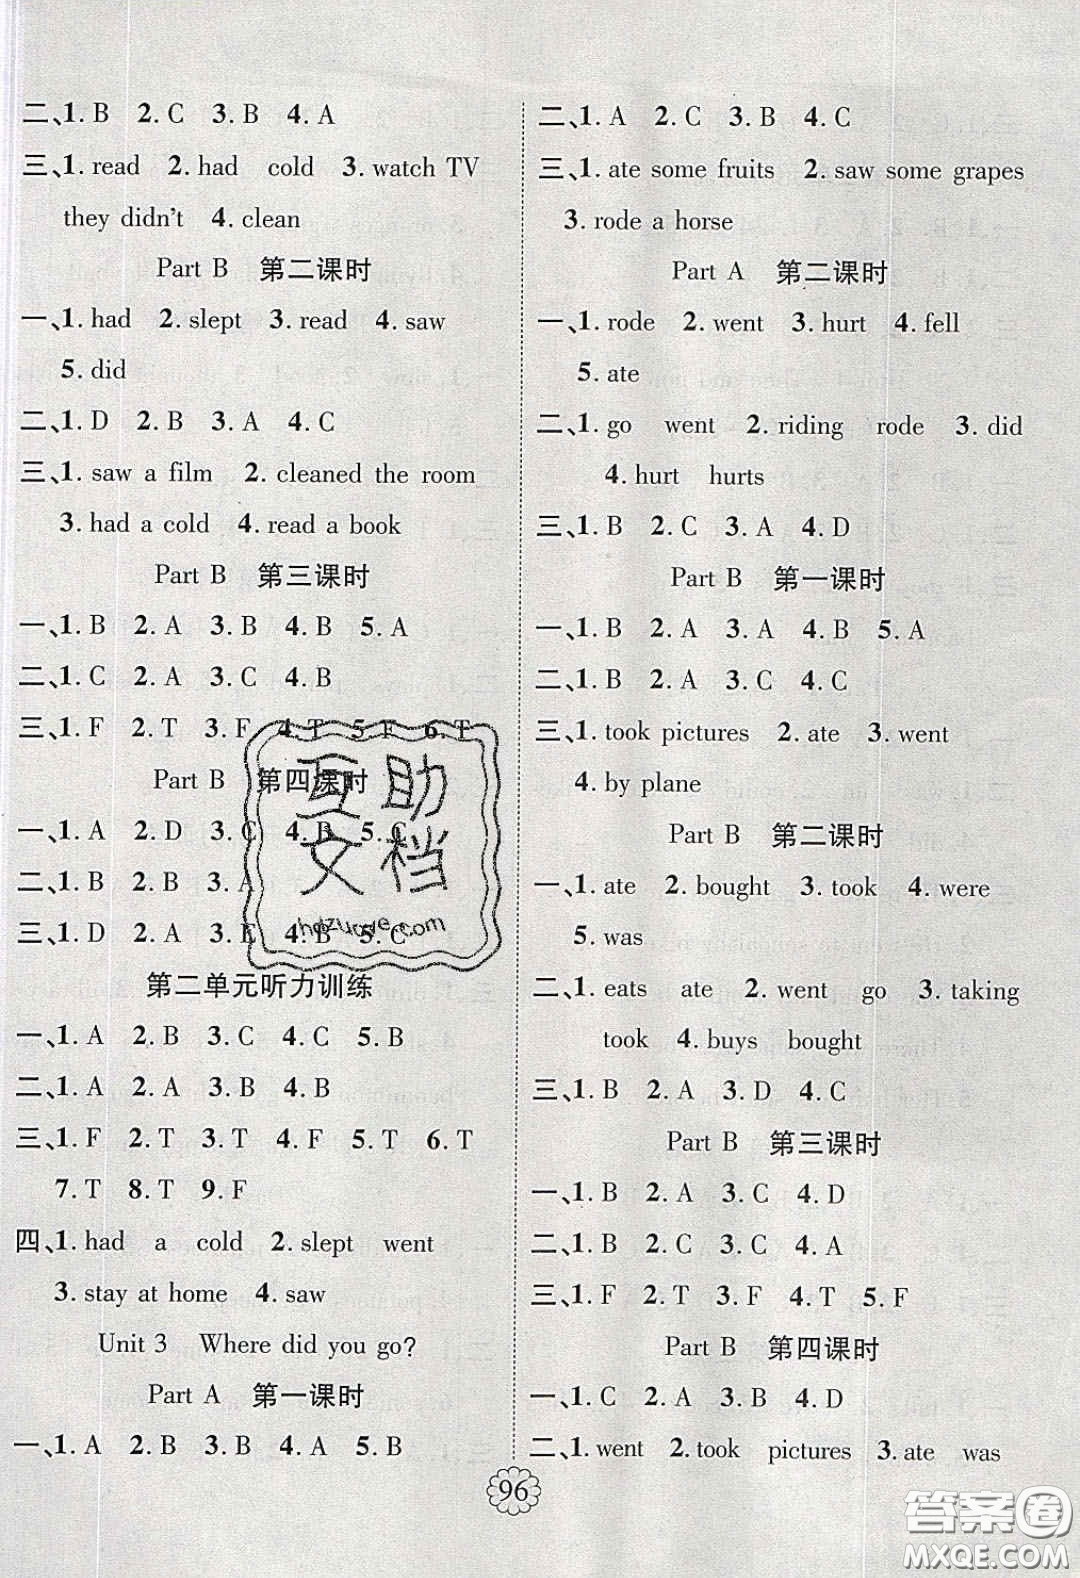 二、1. B 2. C 3. B 4. A
三、1. read 2. had cold 3. watch TV
they didn't 4. clean
Part B 第二课时
一、1. had 2. slept 3. read 4. saw
5. did
二、1. D 2. B 3. A 4. C
三、1. saw a film 2. cleaned the room
3. had a cold 4. read a book
Part B 第三课时
一、1. B 2. A 3. B 4. B 5. A
二、1. C 2. A 3. C 4. B
三、1. F 2. T 3. F 4. T 5. F 6. T
Part B 第四课时
一、1. A 2. D 3. C 4. B 5. C
二、1. B 2. B 3. A
三、1. D 2. A 3. E 4. B 5. C
第二单元听力训练
一、1. A 2. B 3. C 4. C 5. B
二、1. A 2. A 3. B 4. B
三、1. F 2. T 3. T 4. F 5. T 6. T
7. T 8. T 9. F
四、1. had a cold 2. slept went
3. stay at home 4. saw
Unit 3 Where did you go?
Part A 第一课时
一、1. A 2. B 3. B 4. A 5. B
二、1. A 2. C 3. B 4. C
三、1. ate some fruits 2. saw some grapes
3. rode a horse
Part A 第二课时
一、1. rode 2. went 3. hurt 4. fell
5. ate
二、1. go went 2. riding rode 3. did
4. hurt hurts
三、1. B 2. C 3. A 4. D
Part B 第一课时
一、1. B 2. A 3. A 4. B 5. A
二、1. B 2. A 3. C 4. C
三、1. took pictures 2. ate 3. went
4. by plane
Part B 第二课时
一、1. ate 2. bought 3. took 4. were
5. was
二、1. eats ate 2. went go 3. taking
took 4. buys bought
三、1. B 2. A 3. D 4. C
Part B 第三课时
一、1. B 2. A 3. C 4. D
二、1. B 2. C 3. C 4. A
三、1. F 2. T 3. T 4. T 5. F
Part B 第四课时
一、1. C 2. A 3. B 4. D
二、1. went 2. took pictures 3. ate was
96
互助
文档
hdzuoye.com
答案圈
MXQE.COM